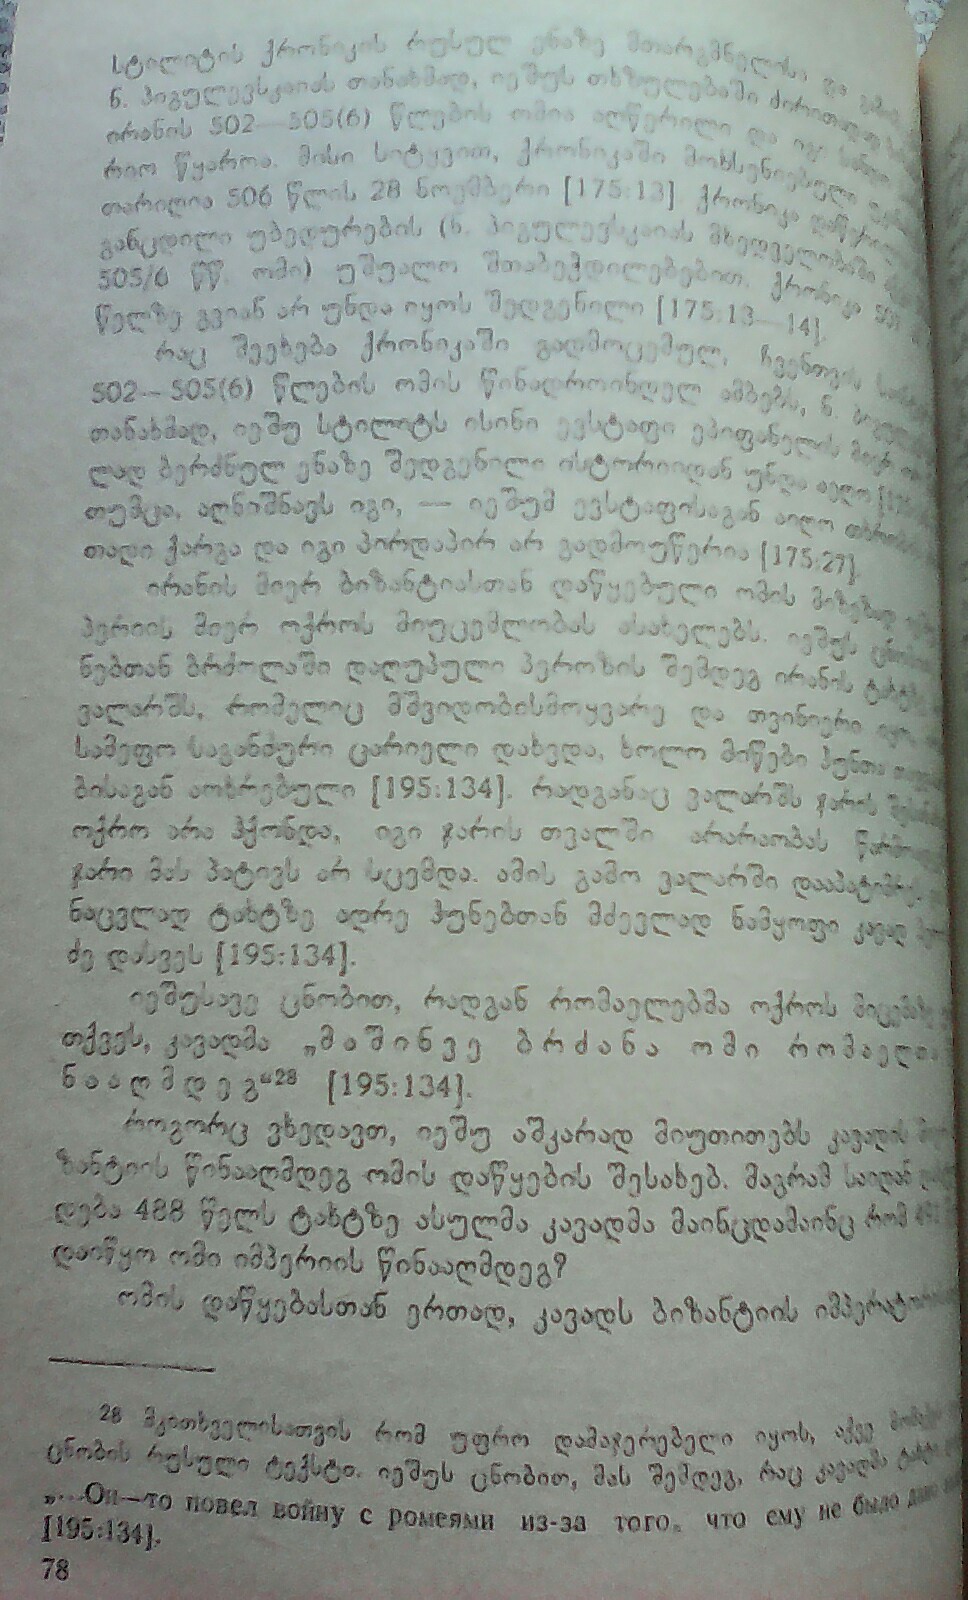 სტილიტის ქრონიკის რუსულ ენაზე მთარგმნელისა და
ნ. პიგულევსკაიას თანახმად, იეშუს თხზულებაში ძირითადად
ირანის 502—505(6) წლების ომია აღწერილი და იგი
რიო წყაროა. მისი სიტყვით, ქრონიკაში მოხსენიებული
თარიღია 506 წლის 28 ნოემბერი [175:13] ქრონიკა
განცდილი უბედურების (ნ. პიგულევსკაიას მხედველობაში
505/6 წწ. ომი) უშუალო შთაბეჭდილებებით. ქრონიკა
წელზე გვიან არ უნდა იყოს შედგენილი [175:13—14].
რაც შეეხება ქრონიკაში გადმოცემულ, ჩვენთვის
502—505(6) წლების ომის წინადროინდელ ამბებს, ნ.
თანახმად, იეშუ სტილიტს ისინი ევსტაფი ეპიფანელის მიერ
ლად ბერძნულ ენაზე შედგენილი ისტორიიდან უნდა აეღო
თუმცა, აღნიშნავს იგი, — იეშუმ ევსტაფისაგან აიღო
თადი ქარგა და იგი პირდაპირ არ გადმოუწერია [175:27].
ირანის მიერ ბიზანტიასთან დაწყებული ომის მიზეზად
პერიის მიერ ოქროს მიუცემლობას ასახელებს. იეშუს
ნებთან ბრძოლაში დაღუპული პეროზის შემდეგ ირანის
ვალარშს, რომელიც მშვიდობისმოყვარე და თვინიერი იყო,
სამეფო საგანძური ცარიელი დახვდა, ხოლო მიწები ჰუნთა
ბისაგან აოხრებული [195:134]. რადგანაც ვალარშს ჯარის
ოქრო არა ჰქონდა, იგი ჯარის თვალში არარაობას
ჯარი მას პატივს არ სცემდა. ამის გამო ვალარში
ნაცვლად ტახტზე ადრე ჰუნებთან მძევლად ნამყოფი კავად
ძე დასვეს [195:134].
იეშუსავე ცნობით, რადგან რომაელებმა ოქროს მიცემაზე
თქვეს, კავადმა „მაშინვე ბრძანა ომი რომაელთა
ნააღმდეგ“²⁸ [195:134].
როგორც ვხედავთ, იეშუ აშკარად მიუთითებს კავადის
ზანტიის წინააღმდეგ ომის დაწყების შესახებ. მაგრამ საიდან
დება 488 წელს ტახტზე ასულმა კავადმა მაინცდამაინც რომ
დაიწყო ომი იმპერიის წინააღმდეგ?
ომის დაწყებასთან ერთად, კავადს ბიზანტიის
28 მკითხველისათვის რომ უფრო დამაჯერებელი იყოს, აქვე
ცნობის რუსული ტექსტი. იეშუს ცნობით, მას შემდეგ, რაც კავადმა
„...Он—то повел войну с ромеями из-за того, что ему не было
[195:134].
78